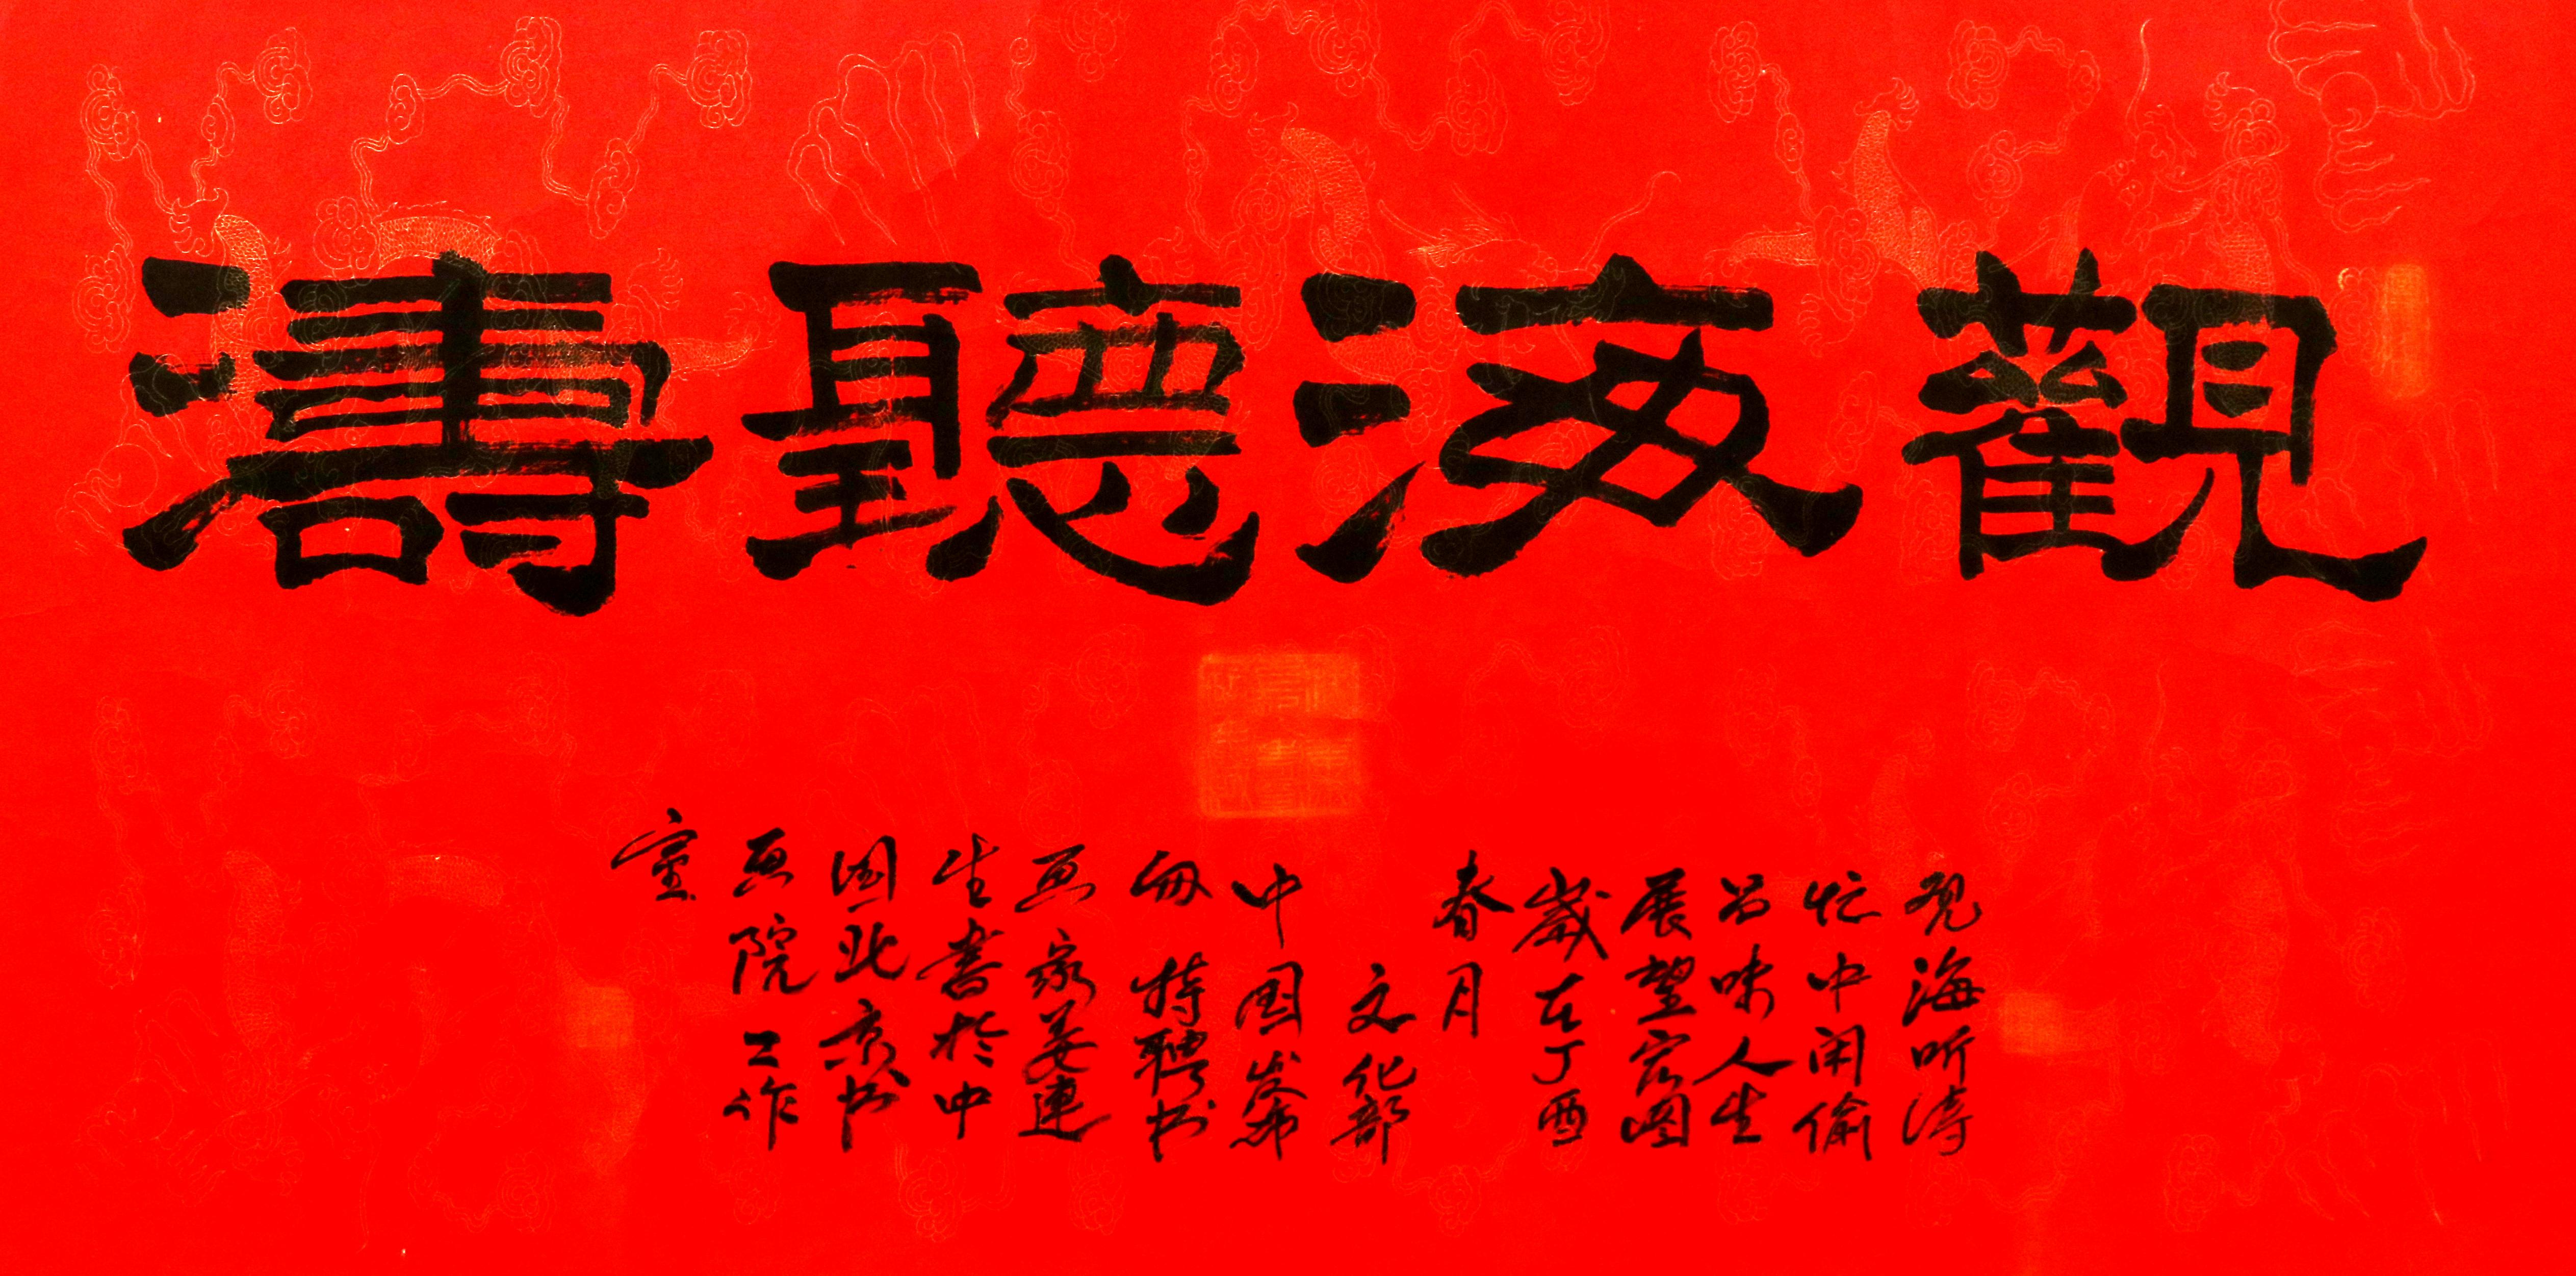 觀海聽濤
观海听涛
忙中闲偷
品味人生
展望宏图
歲在丁酉
春月
文化部
中国
特聘书
画家姜連
生書於中
国北京书
画院工作
室